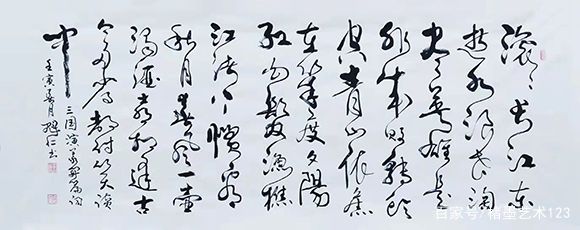 滚滚长江东
逝水浪花淘
尽英雄是
非成败转头
空青山依旧
在几度夕阳
红白发渔樵
江渚上惯看
秋月春风一壶
浊酒喜相逢古
今多少事都付笑谈
中
三国演义开篇词
壬寅春月 仁书
百家号/楷墨艺术123